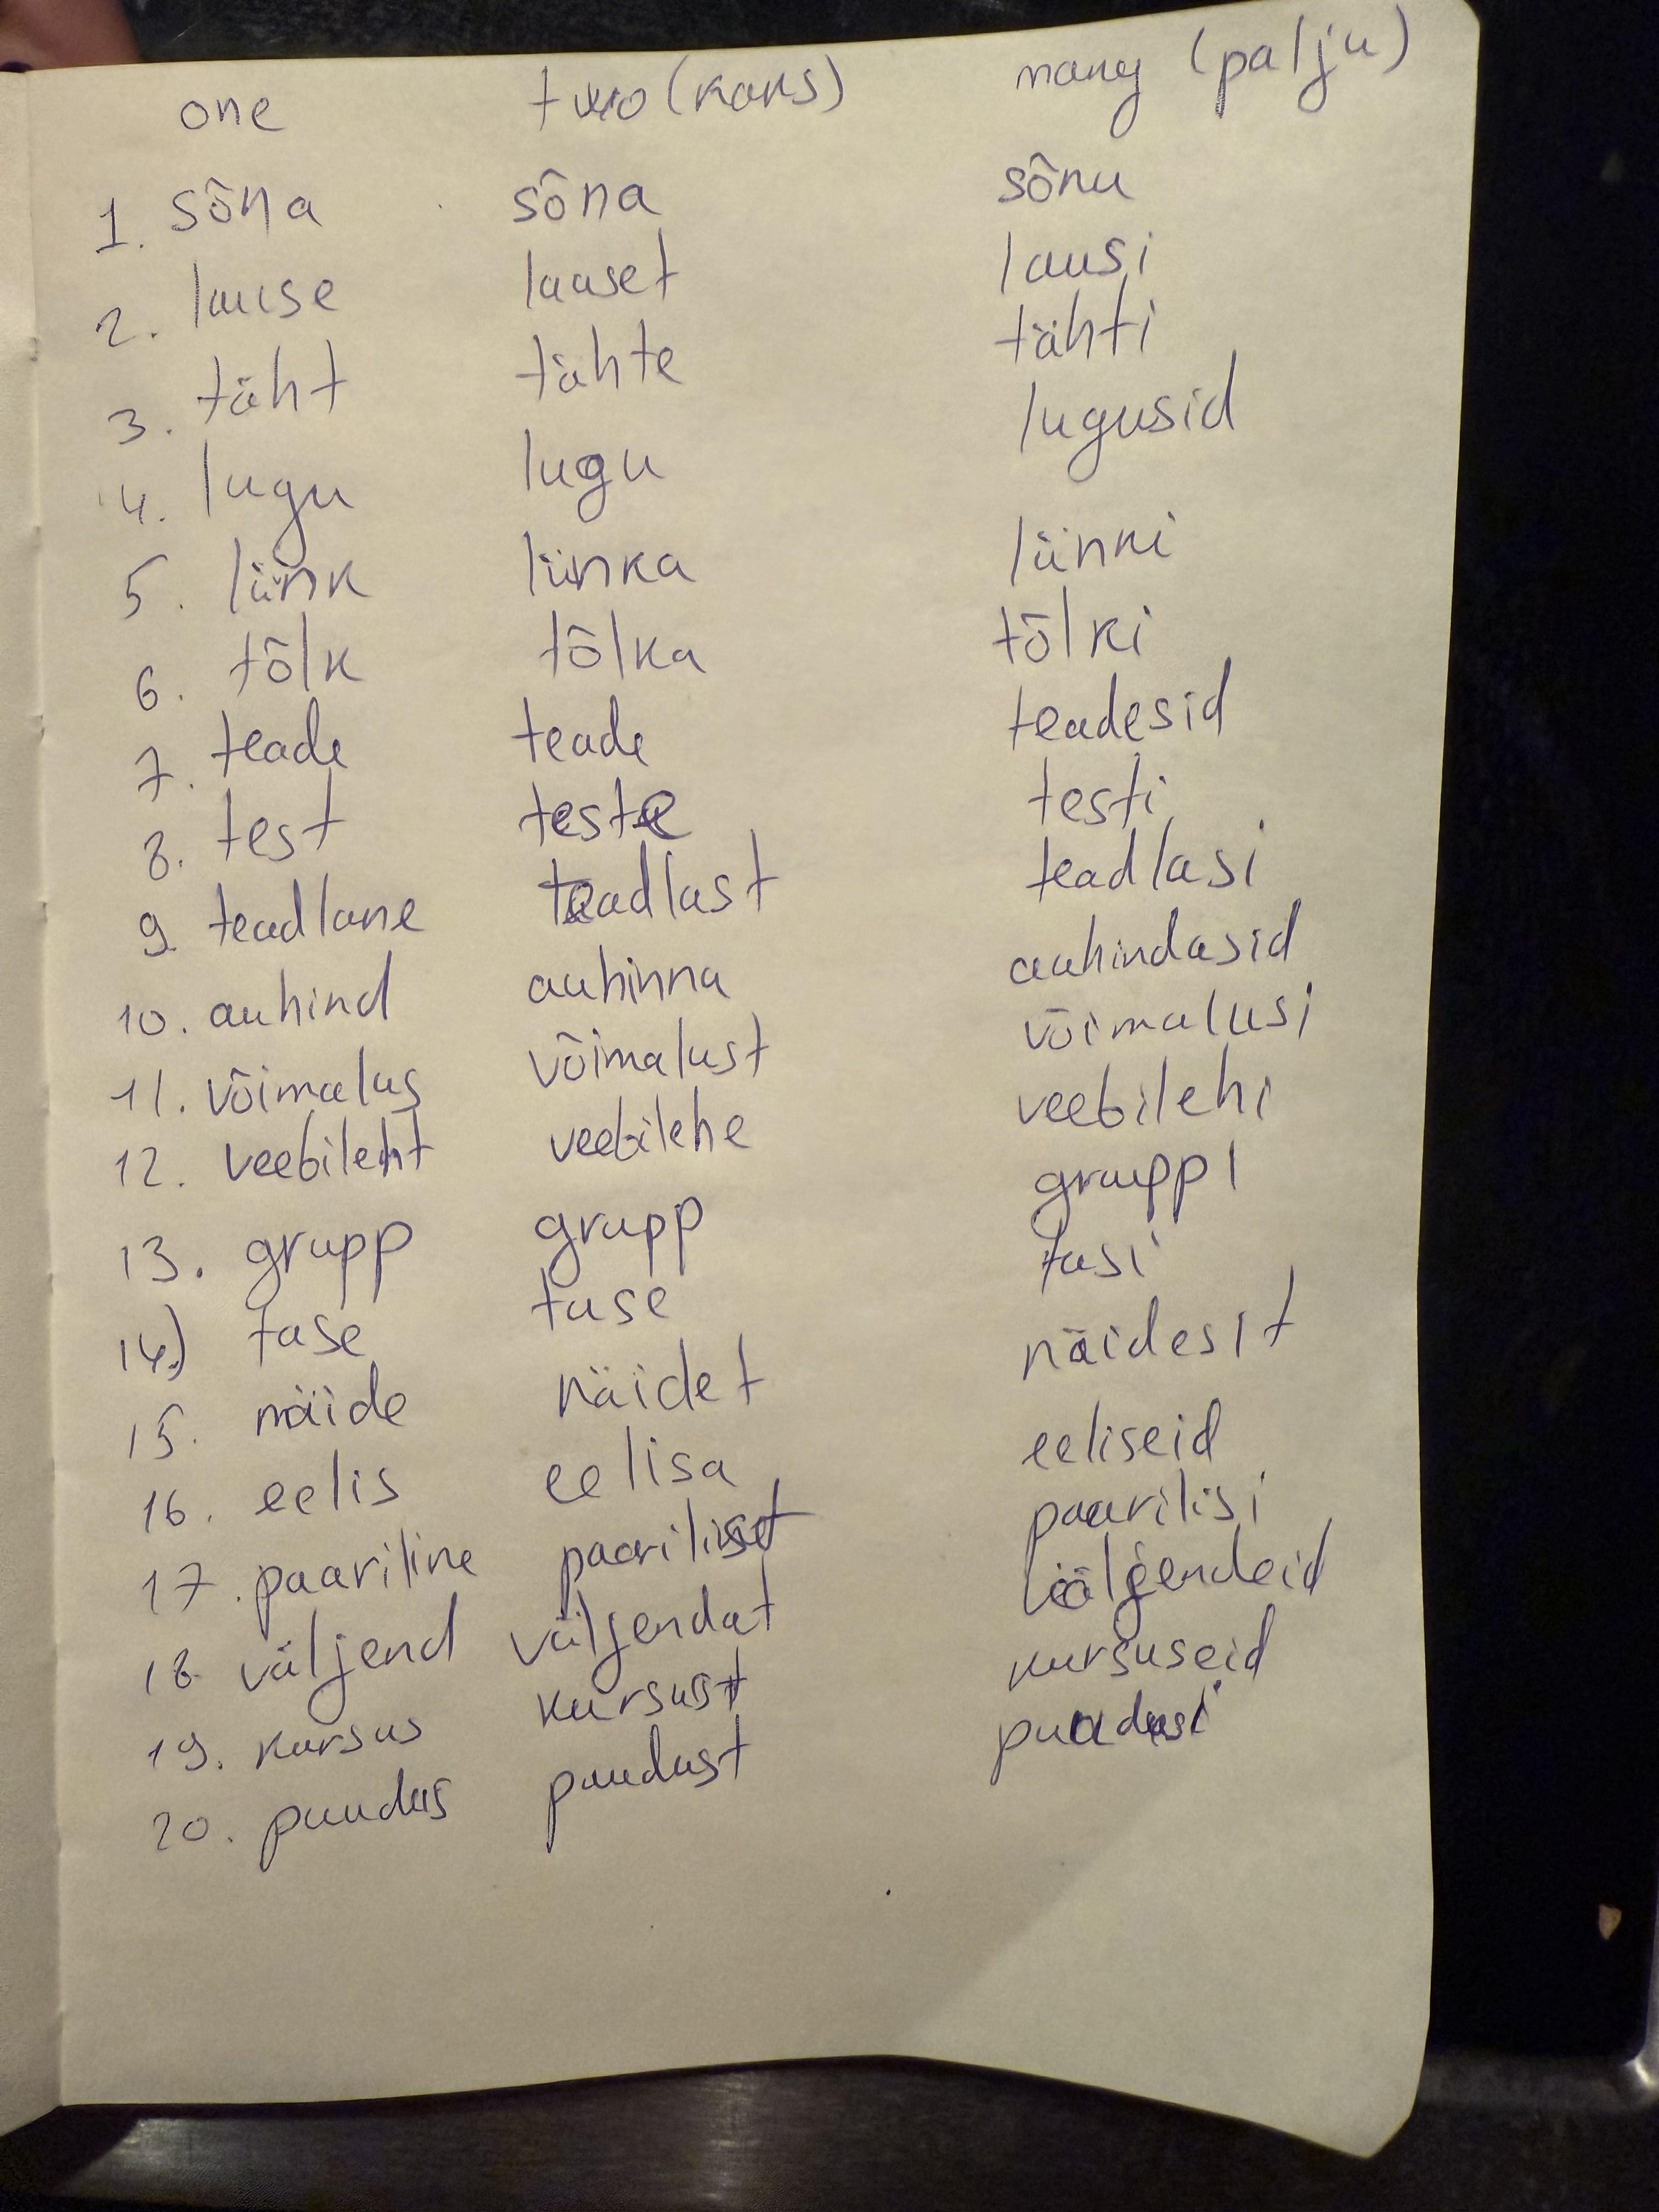 one two (kaks) many (palju)
1. sõna sõna sõnu
2. lause lauset lausi
3. täht tähte tähti
4. lugu lugu lugusid
5. lünk lünka lünki
6. tõlk tõlka tõlki
7. teade teade teadesid
8. test teste testi
9. teadlane teadlast teadlasi
10. auhind auhinna auhindasid
11. võimalus võimalust võimalusi
12. veebileht veebilehe veebilehi
13. grupp grupp gruppi
14.) tase tase tasi
15. näide näidet näidesit
16. eelis eelisa eeliseid
17. paariline paarilist paarilisi
18. väljend väljendat väljendeid
19. kursus kursust kursuseid
20. puudus puudust puudusi